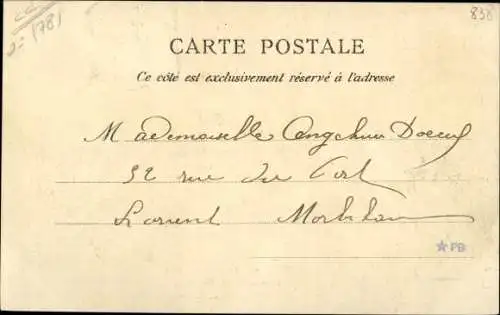 1781
838
CARTE POSTALE
Ce côté est exclusivement réservé à l'adresse
Mademoiselle
52 rue du Port
Lorient Morbihan
★PB